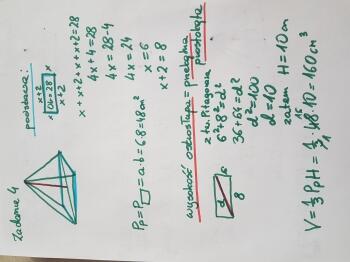 Zadanie 4
podstawa:
x+2
Ob=28
x
x+2
x+x+2+x+x+2=28
4x+4=28
4x=28-4
4x=24
x=6
x+2=8
Pp=P▭=a·b=6·8=48cm²
wysokość ostrosłupa = przekątna prostokąta
z tw. Pitagorasa
6²+8²=d²
36+64=d²
d²=100
d=10
zatem H=10cm
d
6
8
V=⅓PpH=⅓·48·10=160cm³
16
1